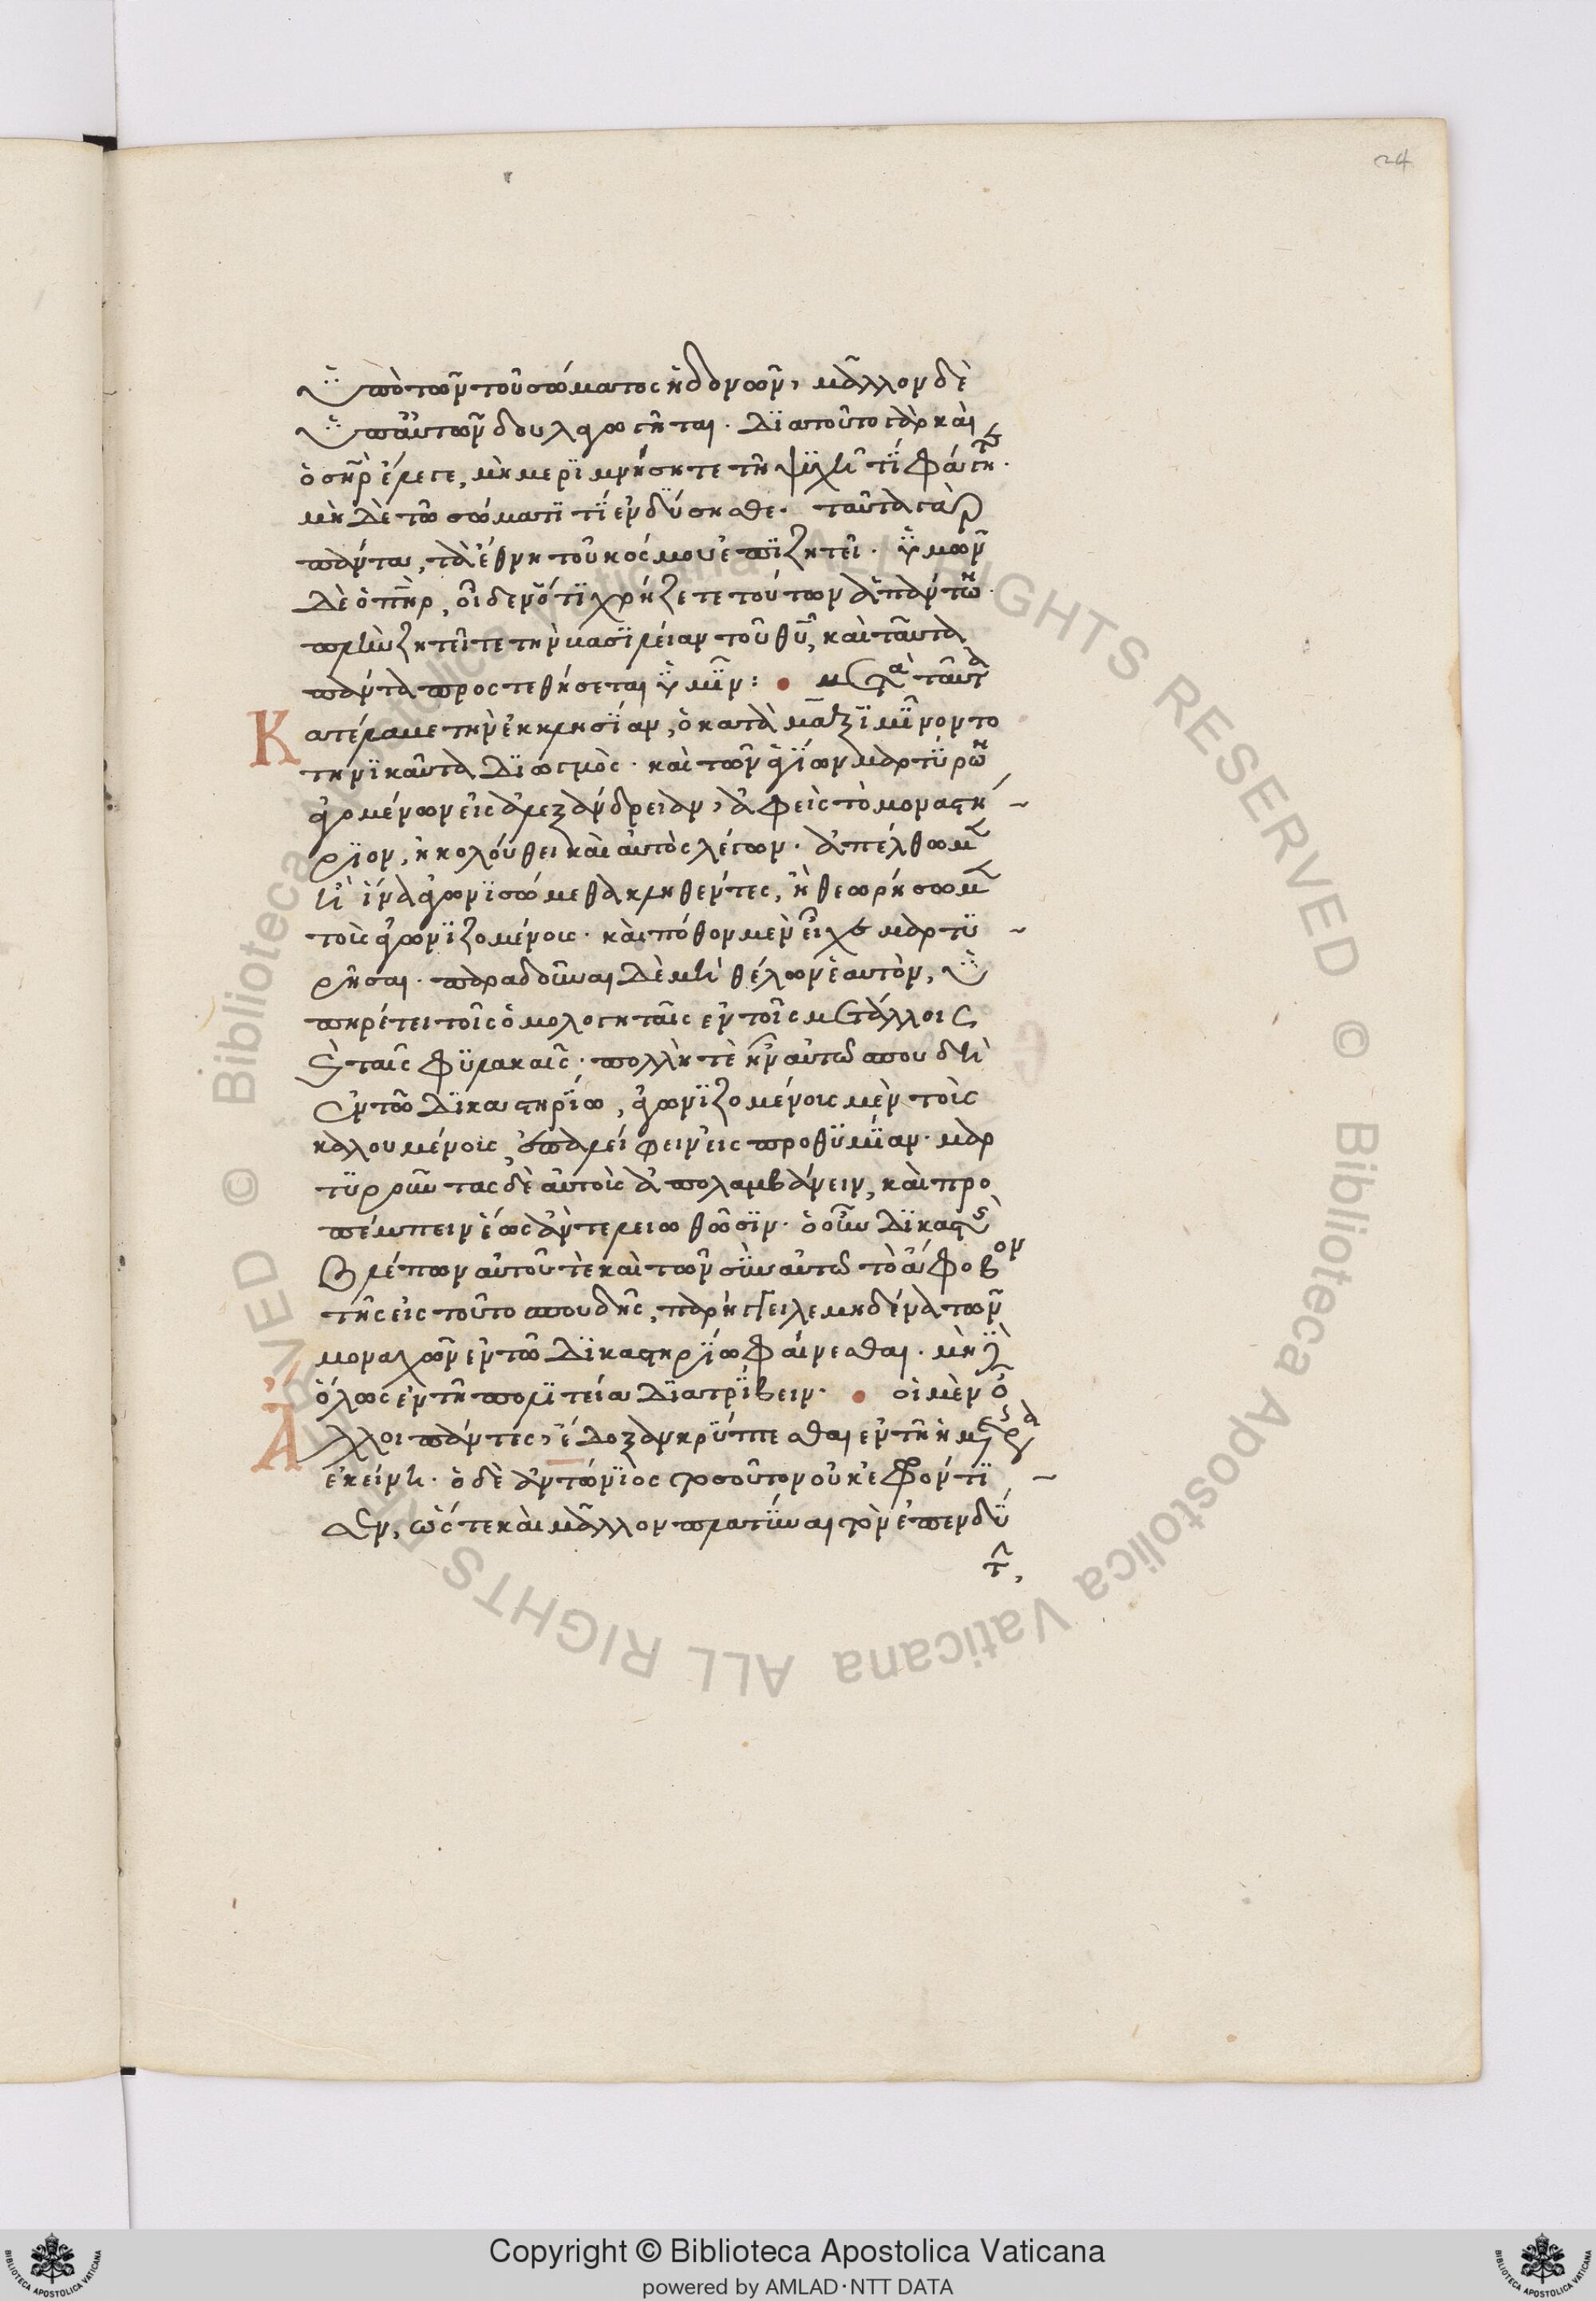 24
ὑπὸ τῶν τοῦ σώματος ἡδονῶν, μᾶλλον δὲ
ὑπ' αὐτῶν δουλαγωγῆται. Διὰ τοῦτο γὰρ καὶ
ὁ σηρ ἔλεγε, μὴ μεριμνήσητε τῇ ψυχῇ τί φάγητε.
μὴ δὲ τῶ σώματι τί ἐνδύσησθε. ταῦτα γὰρ
πάντα, τὰ ἔθνη τοῦ κόσμου ἐπιζητεῖ. ὑμῶν
δὲ ὁ πηρ, οἶδεν ὅτι χρήζετε τούτων ἁπάντων.
πλὴν ζητεῖτε τὴν βασιλείαν τοῦ θυ, καὶ ταῦτα
πάντα προστεθήσεται ὑμῖν: Μετὰ ταῦτα
Κατέλαβε τὴν ἐκκλησίαν, ὁ κατὰ μαξιμῖνον το
τηνικαῦτα διωγμός. καὶ τῶν ἁγίων μαρτύρων
ἀγομένων εἰς ἀλεξάνδρειαν, ἀφεὶς τὸ μοναστή
ριον, ἠκολούθει καὶ αὐτὸς λέγων. ἀπέλθωμεν
ἢ ἵνα ἀγωνισώμεθα κληθέντες, ἢ θεωρήσωμεν
τοὺς ἀγωνιζομένους. καὶ πόθον μὲν εἶχε μαρτυ
ρῆσαι. παραδοῦναι δὲ μὴ θέλων ἑαυτὸν, ὑ
πηρέτει τοῖς ὁμολογηταῖς ἐν τοῖς μετάλλοις
καὶ ταῖς φυλακαῖς. πολλή τε ἦν αὐτῶ σπουδὴ
ἐν τῶ δικαστηρίω, ἀγωνιζομένους μὲν τοὺς
καλουμένους, ἐπαλείφειν εἰς προθυμίαν. μαρ
τυροῦντας δὲ αὐτοὺς ἀπολαμβάνειν, καὶ προ
πέμπειν ἕως ἂν τελειωθῶσιν. ὁ οὖν δικαστὴς
βλέπων αὐτοῦ τὲ καὶ τῶν σὺν αὐτῶ τὸ ἄφοβον
τῆς εἰς τοῦτο σπουδῆς, παρήγγειλε μηδένα τῶν
μοναχῶν ἐν τῶ δικαστηρίω φαίνεσθαι. μὴ δὲ
ὅλως ἐν τῇ πολιτεία διατρίβειν. οἱ μὲν οὖν
Ἄλλοι πάντες, ἔδοξαν κρύπτεσθαι ἐν τῇ ἡμέρα
ἐκείνῃ. ὁ δὲ ἀντώνιος τοσοῦτον οὐκ ἐφρόντι
σεν, ὥς τε καὶ μᾶλλον πλατῦναι τὸν ἐπενδύ
τ,
Copyright © Biblioteca Apostolica Vaticana
powered by AMLAD·NTT DATA